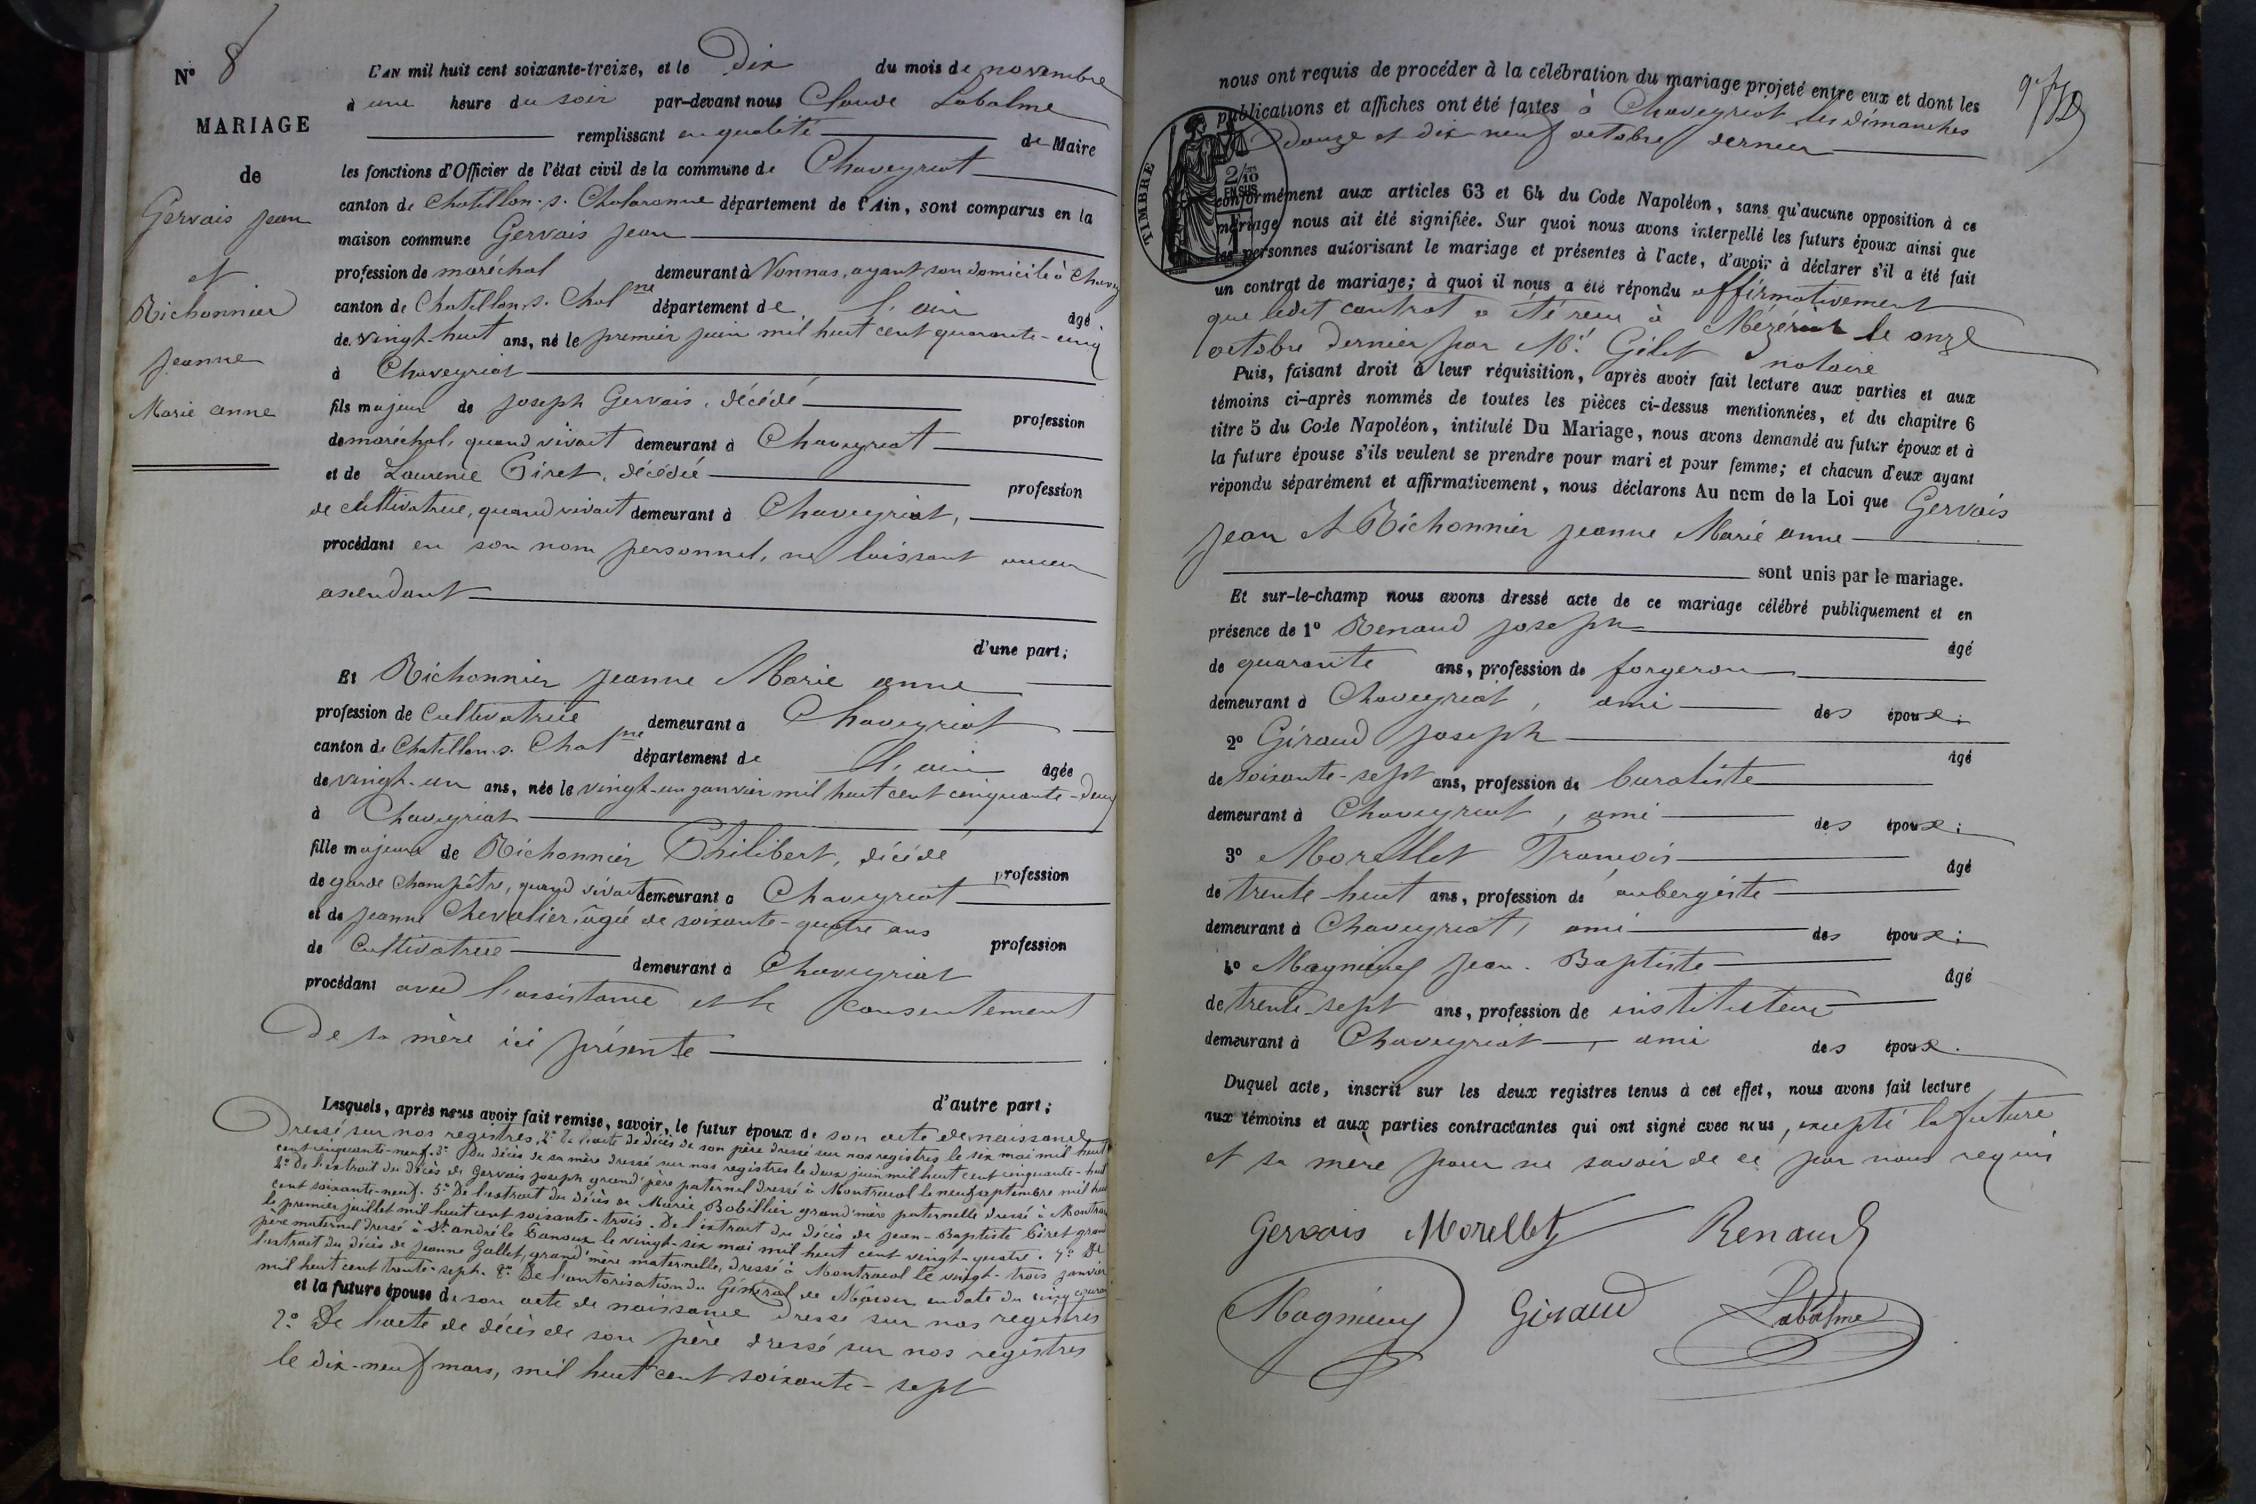 N° 8
MARIAGE
de
Gervais Jean
et
Richonnier
Jeanne
Marie anne
L'AN mil huit cent soixante-treize, et le Dix du mois de novembre
à une heure du soir par-devant nous Claude Labalme
remplissant en qualité de Maire
les fonctions d'Officier de l'état civil de la commune de Chaveyriat
canton de Chatillon-s-Chalaronne département de l'Ain, sont comparus en la
maison commune Gervais Jean
profession de maréchal demeurant à Vonnas, ayant son domicile à Chavey
canton de Chatillon-s-Chalne département de l'ain âgé
de vingt-huit ans, né le premier juin mil huit cent quarante-cinq
à Chaveyriat
fils majeur de Joseph Gervais, décédé profession
de maréchal, quand vivait demeurant à Chaveyriat
et de Laurence Piret, décédée profession
de cultivatrice, quand vivait demeurant à Chaveyriat,
procédant en son nom personnel, ne laissant aucun
ascendant
d'une part;
Et Richonnier Jeanne Marie anne
profession de Cultivatrice demeurant à Chaveyriat
canton de Chatillon-s-Chalne département de l'ain âgée
de vingt-un ans, née le vingt-un janvier mil huit cent cinquante-deux
à Chaveyriat
fille majeure de Richonnier Philibert, décédé profession
de garde Champêtre, quand vivait demeurant à Chaveyriat
et de Jeanne Chevalier, âgée de soixante-quatre ans profession
de Cultivatrice demeurant à Chaveyriat
procédant avec l'assistance et le consentement
De sa mère ici présente
d'autre part;
Lesquels, après nous avoir fait remise, savoir, le futur époux de son acte de naissance
Dressé sur nos registres, 2° De l'acte de décès de son père dressé sur nos registres le six mai mil huit
cent cinquante-neuf. 3° Du décès de sa mère dressé sur nos registres le deux juin mil huit cent cinquante-huit
4° De l'extrait du décès de Gervais Joseph grand'père paternel dressé à Montracol le neuf septembre mil huit
cent soixante-neuf. 5° De l'extrait du décès de Marie Bobillier grand'mère paternelle dressé à Montracol
le premier juillet mil huit cent soixante-trois. De l'extrait du décès de Jean-Baptiste Piret grand
père maternel dressé à St andré le Panoux le vingt-six mai mil huit cent vingt-quatre. 7° De
l'extrait du décès de Jeanne Gallet, grand'mère maternelle, dressé à Montracol le vingt-trois janvier
mil huit cent trente-sept. 8° De l'autorisation du Général de Mâcon en date du cinq courant
et la future épouse de son acte de naissance dressé sur nos registres
2° De l'acte de décès de son père dressé sur nos registres
le dix-neuf mars, mil huit cent soixante-sept
nous ont requis de procéder à la célébration du mariage projeté entre eux et dont les
publications et affiches ont été faites à Chaveyriat les dimanches
Douze et dix-neuf octobre dernier
TIMBRE
2/10
EN SUS
conformément aux articles 63 et 64 du Code Napoléon, sans qu'aucune opposition à ce
mariage nous ait été signifiée. Sur quoi nous avons interpellé les futurs époux ainsi que
les personnes autorisant le mariage et présentes à l'acte, d'avoir à déclarer s'il a été fait
un contrat de mariage; à quoi il nous a été répondu affirmativement
que ledit contrat a été reçu à Mézériat le onze
octobre dernier par Me Gélet notaire
Puis, faisant droit à leur réquisition, après avoir fait lecture aux parties et aux
témoins ci-après nommés de toutes les pièces ci-dessus mentionnées, et du chapitre 6
titre 5 du Code Napoléon, intitulé Du Mariage, nous avons demandé au futur époux et à
la future épouse s'ils veulent se prendre pour mari et pour femme; et chacun d'eux ayant
répondu séparément et affirmativement, nous déclarons Au nom de la Loi que Gervais
Jean et Richonnier Jeanne Marie anne
sont unis par le mariage.
Et sur-le-champ nous avons dressé acte de ce mariage célébré publiquement et en
présence de 1° Renaud Joseph âgé
de quarante ans, profession de forgeron
demeurant à Chaveyriat, ami des époux;
2° Giraud Joseph âgé
de soixante-sept ans, profession de buraliste
demeurant à Chaveyriat, ami des époux;
3° Morellet François âgé
de trente-huit ans, profession de aubergiste
demeurant à Chaveyriat, ami des époux;
4° Magnieny Jean-Baptiste âgé
de trente-sept ans, profession de instituteur
demeurant à Chaveyriat, ami des époux.
Duquel acte, inscrit sur les deux registres tenus à cet effet, nous avons fait lecture
aux témoins et aux parties contractantes qui ont signé avec nous, excepté la future
et sa mère pour ne savoir de ce par nous requis
Gervais Morellet Renaud
Magnieny Giraud Labalme